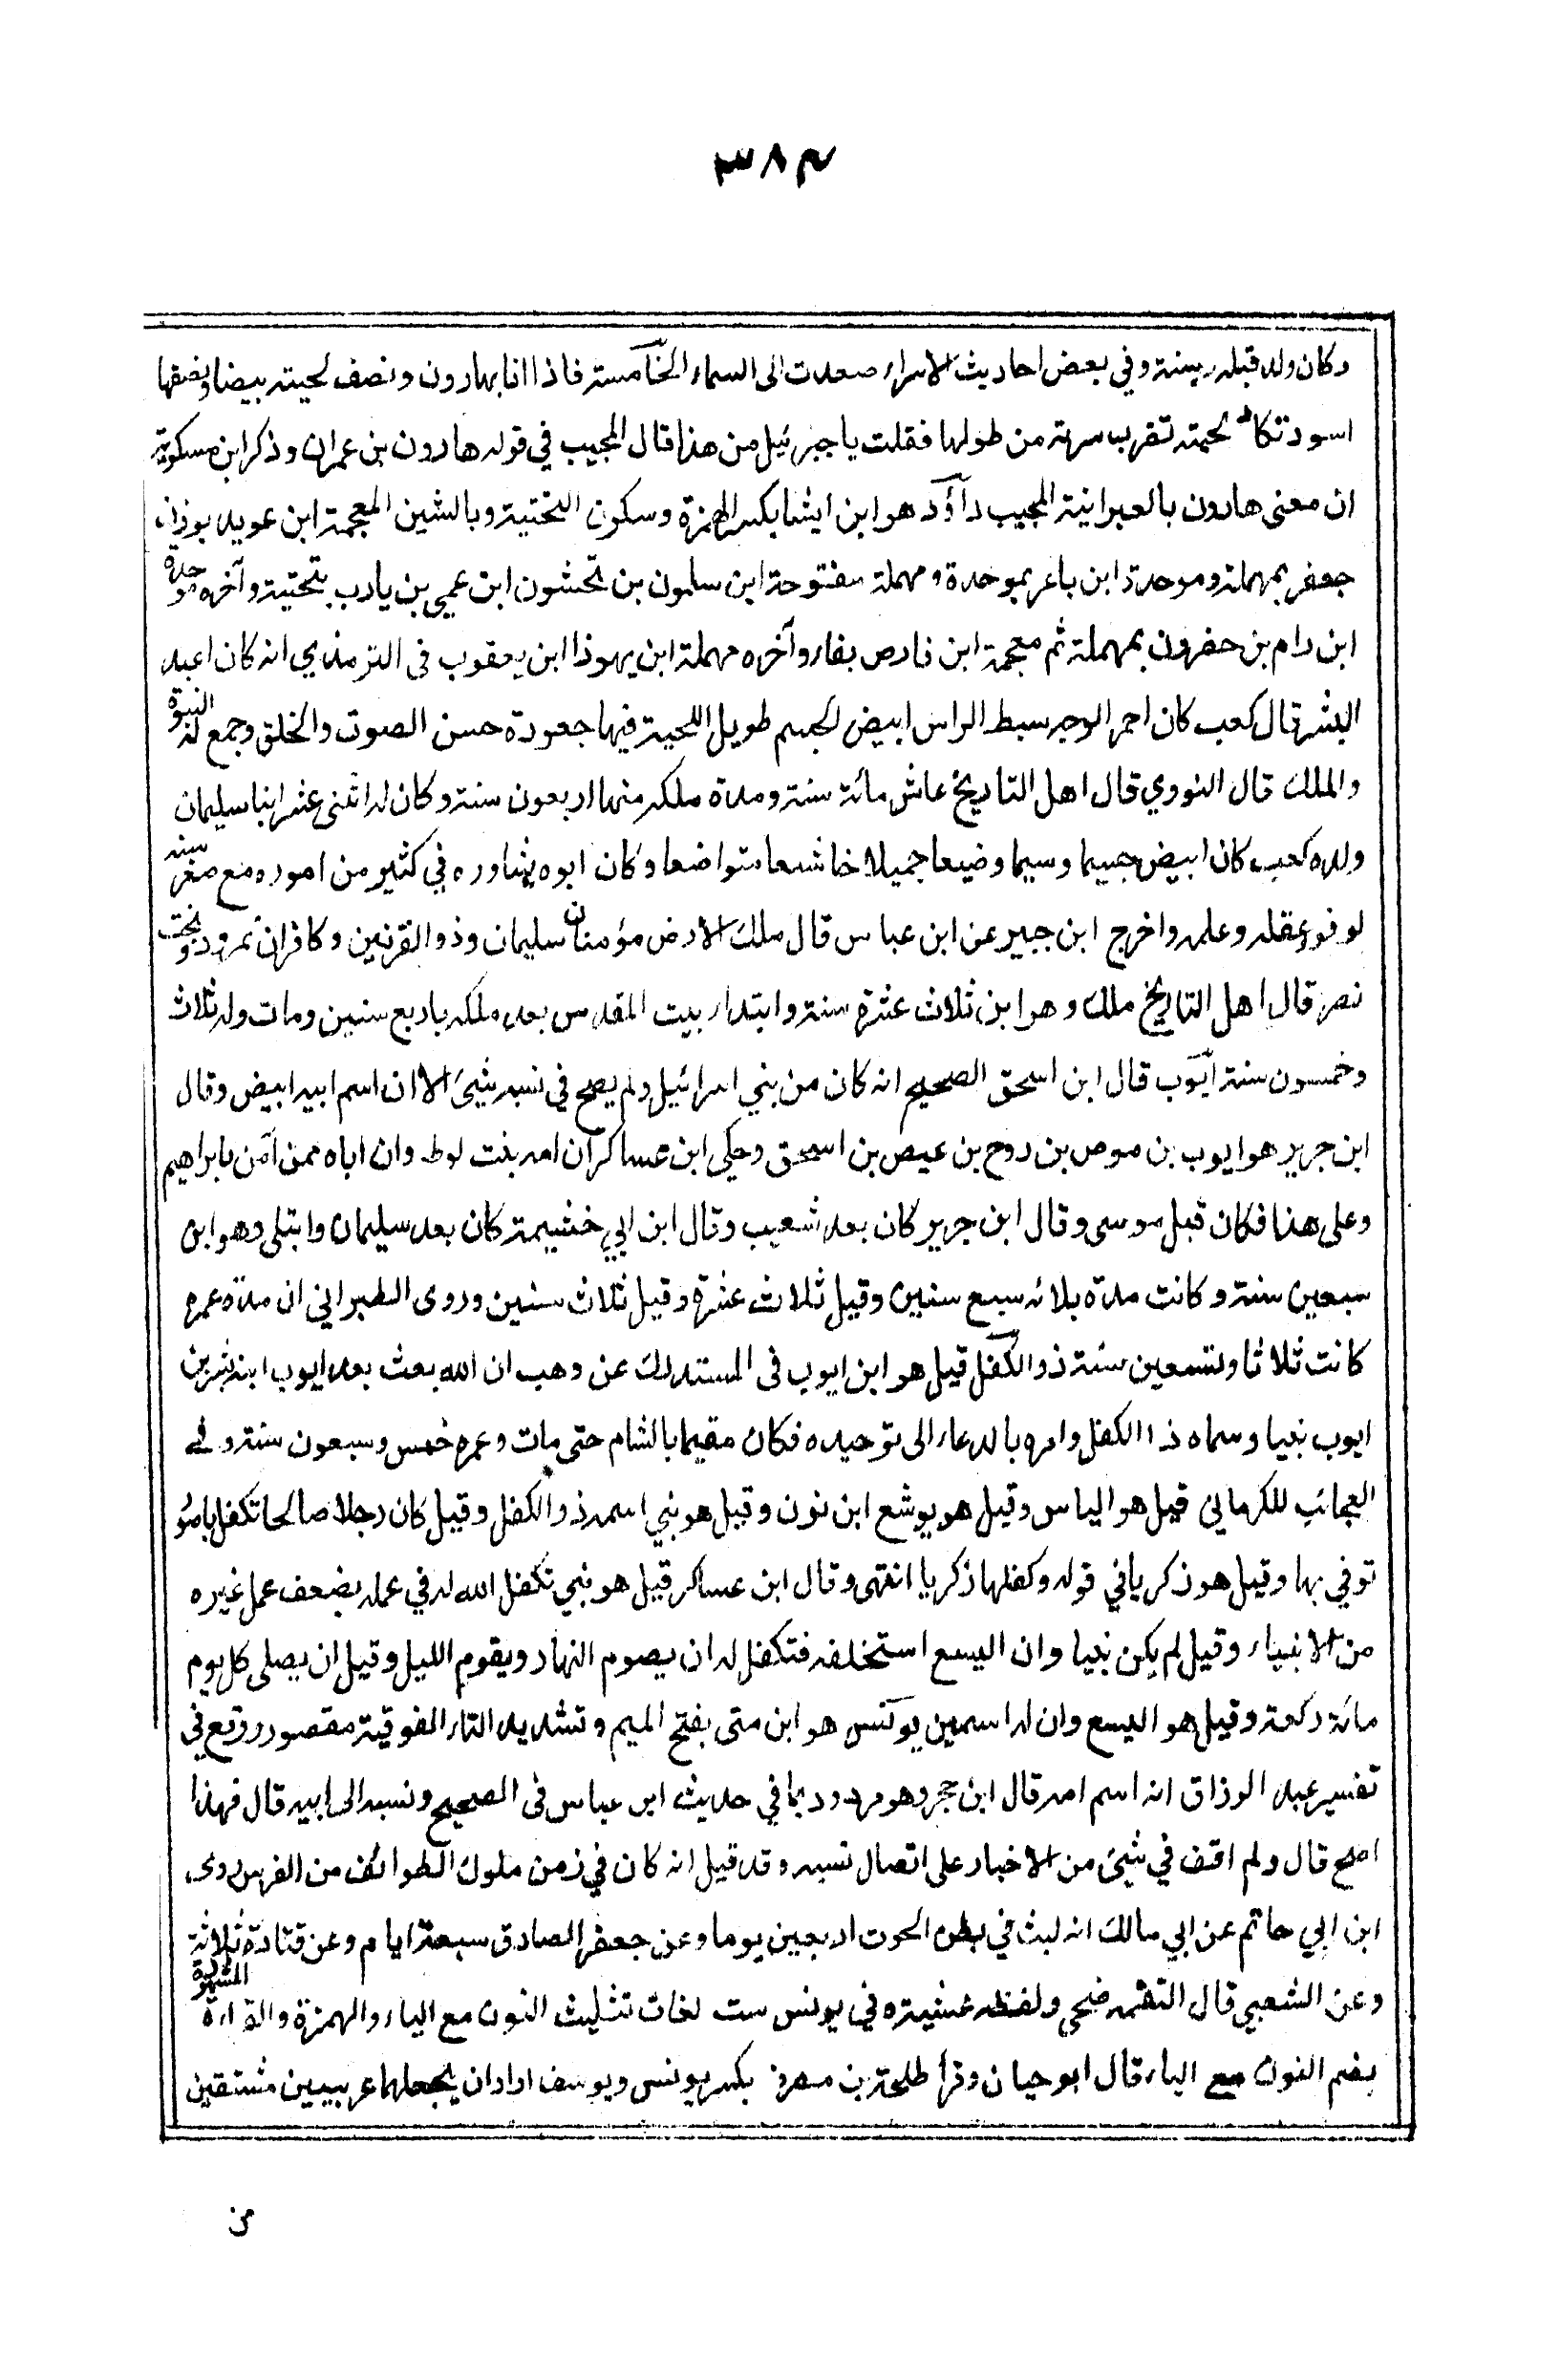 ٣٨٢
وكان ولد قبله بسنة وفي بعض احاديث الاسراء صعدت الى السماء الخامسة فاذا انا بهارون ونصف لحيته بيضا ونصفها
اسود تكاد لحيته تقرب سرته من طولها فقلت يا جبرئيل من هذا قال المجيب في قوله هارون بن عمران وذكر ابن مسكويه
ان معنى هارون بالعبرانية المجيب داؤد هو ابن ايشا بكسر الهمزة وسكون التحتية وبالشين المعجمة ابن عويد بوزن
جعفر بمهملة وموحدة ابن باعر بموحدة ومهملة مفتوحة ابن سلمون بن تحشون ابن عمي بن يارب بتحتية وآخره موحدة
ابن رام بن حضرون بمهملة ثم معجمة ابن فارص بفاء وآخره مهملة ابن يهوذا ابن يعقوب في الترمذي انه كان اعبد
البشر قال كعب كان احمر الوجه سبط الراس ابيض الجسم طويل اللحية فيها جعودة حسن الصوت والخلق وجمع له النبوة
والملك قال النووي قال اهل التاريخ عاش مائة سنة ومدة ملكه منها اربعون سنة وكان له اثنى عشر ابنا سليمان
ولده كعب كان ابيض جسيما وسيما وضيعا جميلا خاشعا متواضعا وكان ابوه يشاوره في كثير من اموره مع صغر سنه
لوفور عقله وعلمه واخرج ابن جبير عن ابن عباس قال ملك الارض مؤمنان سليمان وذو القرنين وكافران نمرود وبخت
نصر قال اهل التاريخ ملك وهو ابن ثلاث عشرة سنة وابتدا بيت المقدس بعد ملكه باربع سنين ومات وله ثلاث
وخمسون سنة ايوب قال ابن اسحق الصحيح انه كان من بني اسرائيل ولم يصح في نسبه شيئ الا ان اسم ابيه ابيض وقال
ابن جرير هو ايوب بن موص بن روح بن عيص بن اسحق وحكى ابن عساكر ان امه بنت لوط وان اباه ممن آمن بابراهيم
وعلى هذا فكان قبل موسى وقال ابن جرير كان بعد شعيب وقال ابن ابي خشيمة كان بعد سليمان وابتلي وهو ابن
سبعين سنة وكانت مدة بلائه سبع سنين وقيل ثلاث عشرة وقيل ثلاث سنين وروى الطبراني ان مدة عمره
كانت ثلاثا وتسعين سنة ذو الكفل قيل هو ابن ايوب في المستدرك عن وهب ان الله بعث بعد ايوب ابنه بشر بن
ايوب نبيا وسماه ذا الكفل وامره بالدعاء الى توحيده فكان مقيما بالشام حتى مات وعمره خمس وسبعون سنة وفي
العجائب للكرماني قيل هو الياس وقيل هو يوشع ابن نون وقيل هو نبي اسمه ذو الكفل وقيل كان رجلا صالحا تكفل بامور
توفي بها وقيل هو زكريا في قوله وكفلها زكريا انتهى وقال ابن عساكر قيل هو نبي تكفل الله له في عمله بضعف عمل غيره
من الانبياء وقيل لم يكن نبيا وان اليسع استخلفه فتكفل له ان يصوم النهار ويقوم الليل وقيل ان يصلى كل يوم
مائة ركعة وقيل هو اليسع وان له اسمين يونس هو ابن متى بفتح الميم وتشديد التاء الفوقية مقصور ووقع في
تفسير عبد الرزاق انه اسم امه قال ابن حجر وهو مردود بما في حديث ابن عباس في الصحيح ونسبه الى ابيه قال فهذا
اصح قال ولم اقف في شيئ من الاخبار على اتصال نسبه وقد قيل انه كان في زمن ملوك الطوائف من الفرس روى
ابن ابي حاتم عن ابي مالك انه لبث في بطن الحوت اربعين يوما وعن جعفر الصادق سبعة ايام وعن قتادة ثلاثة
وعن الشعبي قال التقمه ضحى ولفظه عشية وفي يونس ست لغات تثليث النون مع الياء والهمزة والقراءة المشهورة
بضم النون مع الياء قال ابو حيان وقرأ طلحة بن مصرف بكسر يونس ويوسف اراد ان يجعلهما عربيين مشتقين
من